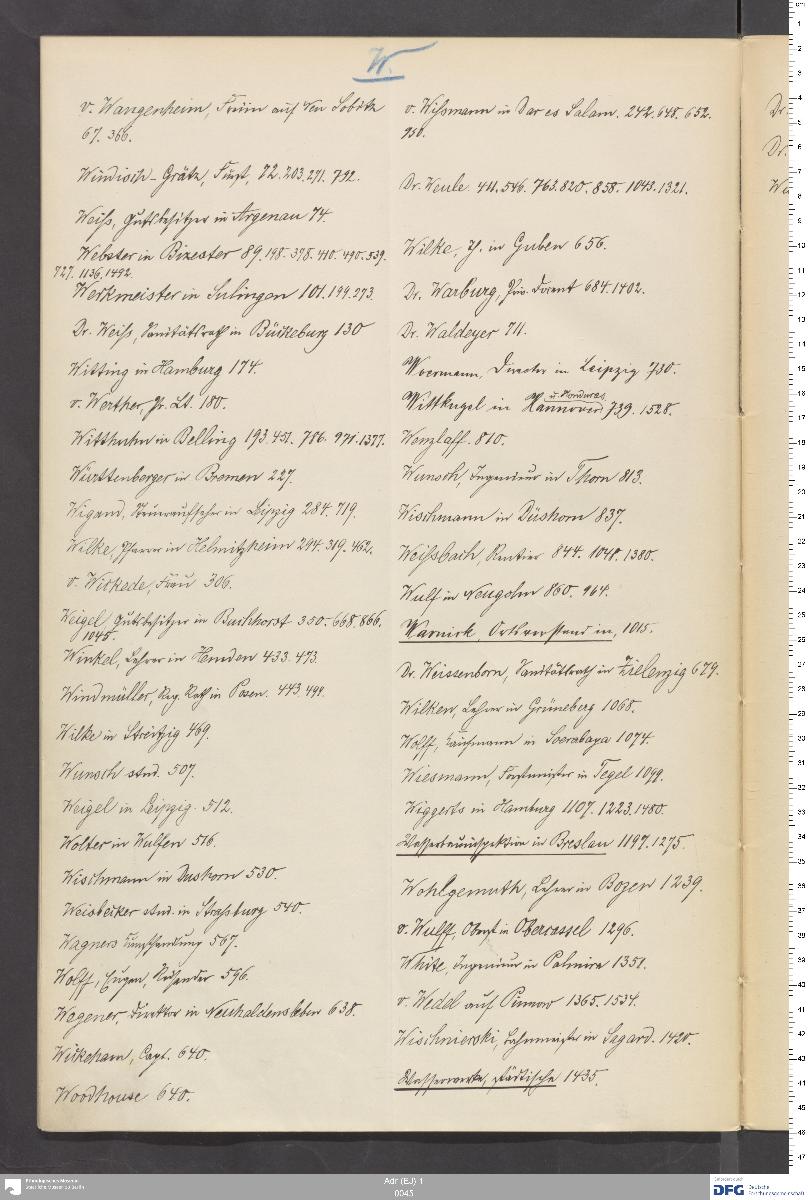 W.
v. Wangenheim, Freiin auf Neu Lobitz
67. 366.
Windisch-Grätz, Fürst, 72. 203. 271. 792.
Weiß, Gutsbesitzer in Argenau 74.
Webster in Bicester 89. 198. 378. 410. 490. 539.
727. 1136. 1492.
Werkmeister in Sulingen 101. 199. 273.
Dr. Weiß, Sanitätsrath in Bückeburg 130
Witting in Hamburg 174.
v. Werther, Pr. Lt. 180.
Witthuhn in Belling 193. 451. 786. 971. 1377.
Württenberger in Bremen 227.
Wigand, Steueraufseher in Leipzig 284. 719.
Wilke, Pfarrer in Helmitzheim 294. 319. 462.
v. Wickede, Frau 306.
Weigel, Gutsbesitzer in Buchhorst 350. 668. 866.
1045.
Winkel, Lehrer in Hemden 433. 473.
Windmüller, Reg. Rath in Posen. 443. 499.
Wilke in Streitzig 469.
Wunsch stud. 507.
Weigel in Leipzig. 512.
Wolter in Wulfen 516.
Wischmann in Dushorn 530.
Weisbecker stud. in Straßburg 540.
Wagners Kunsthandlung 567.
Wolff, Eugen, Reisender 596.
Wegener, Direktor in Neuhaldensleben 638.
Wickeham, Capt. 640.
Woodhouse 640.
v. Wißmann in Dar es Salam. 242. 648. 652.
950.
Dr. Weule. 411. 546. 763. 820. 858. 1043. 1321.
Wilke, H. in Guben 656.
Dr. Warburg, Priv. Docent 684. 1402.
Dr. Waldeyer 711.
Woermann, Director in Leipzig 730.
u. Honduras
Wittkugel in Hannover 739. 1528.
Wenzlaff. 810.
Wunsch, Ingenieur in Thorn 813.
Wischmann in Düshorn 837.
Weißbach, Rentier 844. 1048. 1380.
Wulf in Neugolm 860. 964.
Warnick, Ortsvorstand in, 1015.
Dr. Weissenborn, Sanitätsrath in Zielenzig 679.
Wilken, Lehrer in Grüneberg 1068.
Wolff, Kaufmann in Soerabaya 1074.
Wiesmann, Forstmeister in Tegel 1099.
Wiggerts in Hamburg 1107. 1223. 1480.
Wasserbauinspektion in Breslau 1197. 1275.
Wohlgemuth, Lehrer in Bozen 1239.
v. Wulff, Oberst in Obercassel 1296.
White, Ingenieur in Palmira 1351.
v. Wedel auf Pumow 1365. 1534.
Wischnierski, Bahnmeister in Sagard. 1420.
Wasserwerke, städtische 1435.
Dr.
Dr.
We
Ethnologisches Museum
Staatliche Museen zu Berlin
Adr (EJ) 1
0045
Gefördert durch
DFG Deutsche
Forschungsgemeinschaft